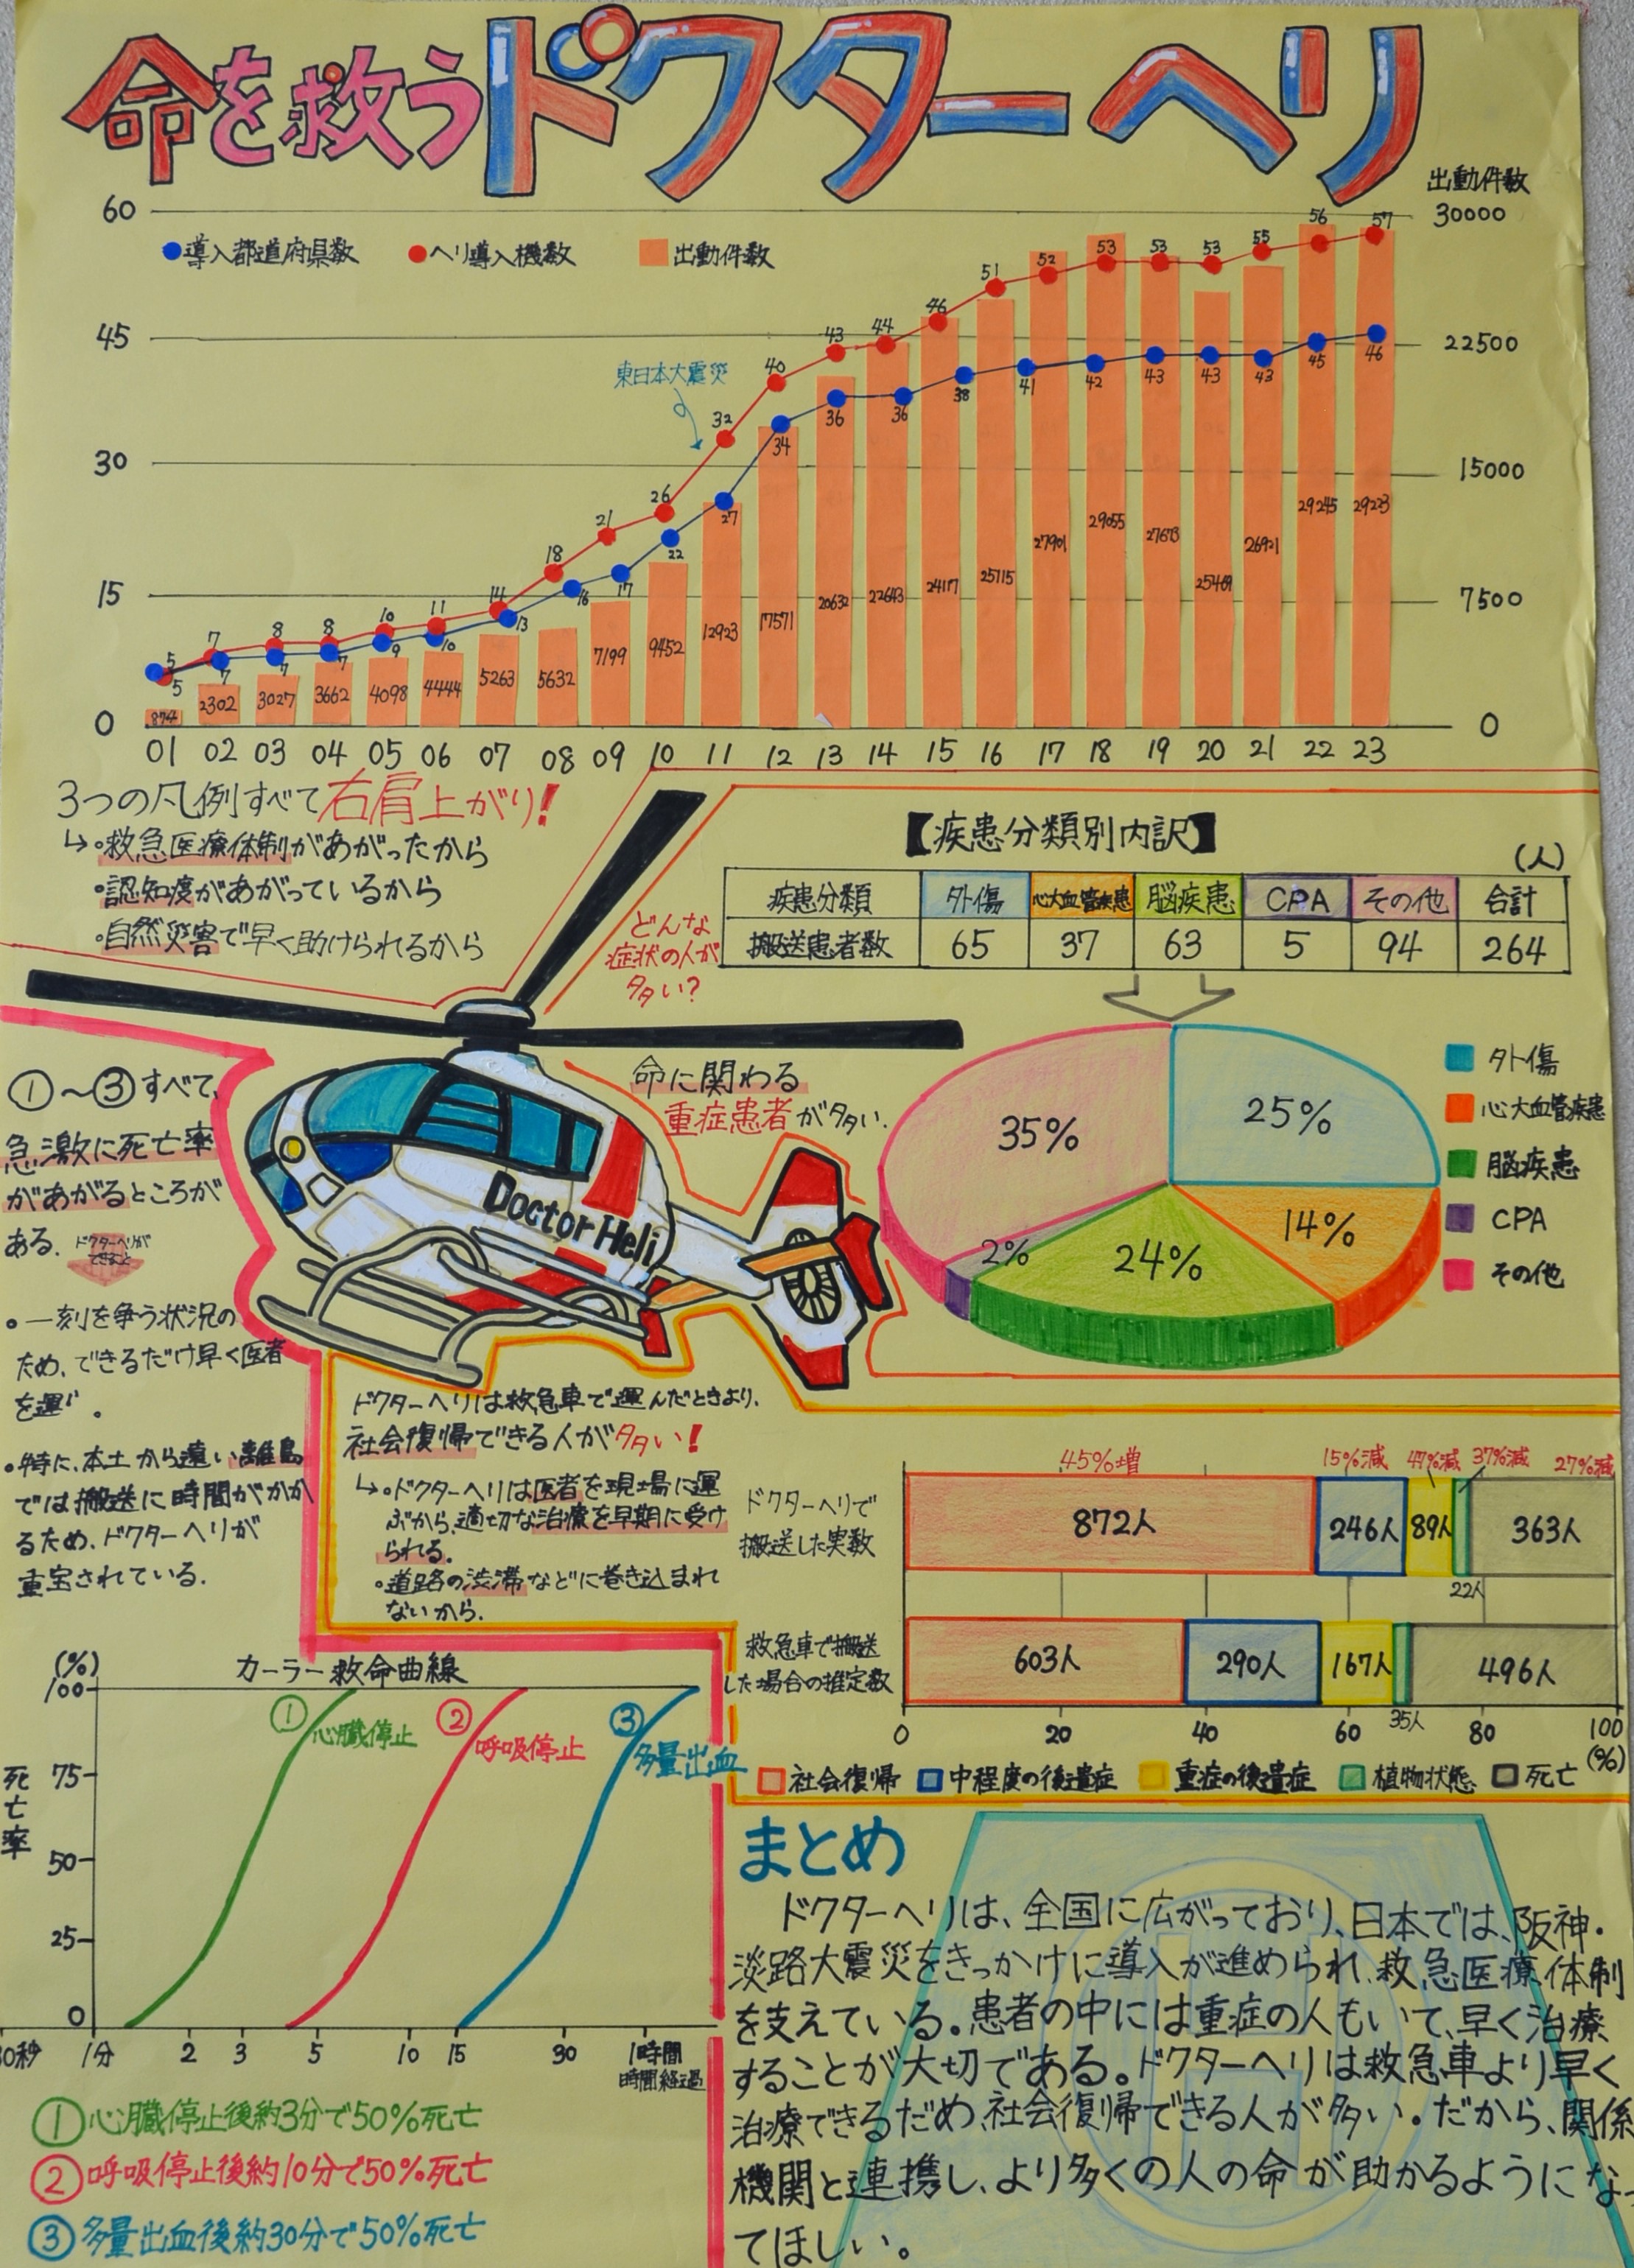 命を救うドクターヘリ
出動件数
60
30000
●導入都道府県数 ●ヘリ導入機数 出動件数
45
22500
30
15000
15
7500
0
0
東日本大震災
5 7 8 8 10 11 14 18 21 26 32 40 43 44 46 51 52 53 53 53 55 56 57
5 7 7 7 9 10 13 16 17 22 27 34 36 36 38 41 42 43 43 43 45 46
874 2302 3027 3662 4098 4444 5263 5632 7199 9452 12923 17571 20632 22643 24117 25115 27901 29055 27673 25469 26921 29245 29223
01 02 03 04 05 06 07 08 09 10 11 12 13 14 15 16 17 18 19 20 21 22 23
3つの凡例すべて右肩上がり!
↳・救急医療体制があがったから
・認知度があがっているから
・自然災害で早く助けられるから
【疾患分類別内訳】
(人)
疾患分類 外傷 心大血管疾患 脳疾患 CPA その他 合計
搬送患者数 65 37 63 5 94 264
どんな
症状の人が
多い?
命に関わる
重症患者が多い.
35%
25%
14%
24%
2%
外傷
心大血管疾患
脳疾患
CPA
その他
Doctor Heli
①~③すべて、
急激に死亡率
があがるところが
ある.
ドクターヘリが
できること
・一刻を争う状況の
ため、できるだけ早く医者
を運ぶ。
・特に、本土から遠い離島
では搬送に時間がかか
るため、ドクターヘリが
重宝されている.
ドクターヘリは救急車で運んだときより、
社会復帰できる人が多い!
↳・ドクターヘリは医者を現場に運
ぶから、適切な治療を早期に受け
られる.
・道路の渋滞などに巻き込まれ
ないから.
45%増 15%減 47%減 37%減 27%減
ドクターヘリで
搬送した実数
872人 246人 89人 363人
22人
救急車で搬送
した場合の推定数
603人 290人 167人 496人
35人
0 20 40 60 80 100
(%)
社会復帰 中程度の後遺症 重症の後遺症 植物状態 死亡
カーラー救命曲線
(%)
100
75
50
25
0
死亡率
①心臓停止
②呼吸停止
③多量出血
0秒 1分 2 3 5 10 15 30 1時間
時間経過
①心臓停止後約3分で50%死亡
②呼吸停止後約10分で50%死亡
③多量出血後約30分で50%死亡
まとめ
ドクターヘリは、全国に広がっており、日本では、阪神・
淡路大震災をきっかけに導入が進められ、救急医療体制
を支えている。患者の中には重症の人もいて、早く治療
することが大切である。ドクターヘリは救急車より早く
治療できるだめ、社会復帰できる人が多い。だから、関係
機関と連携し、より多くの人の命が助かるようになっ
てほしい。